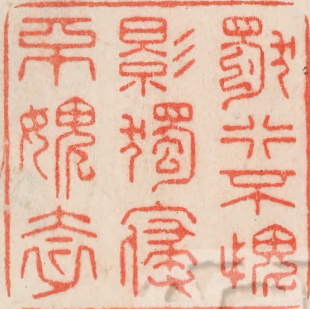 獨行不愧
影獨寢
不媿衾